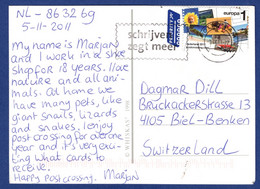 NL - 863269
5-11-2011
My name is Marjan
and I work in a shoe
shop for 18 years. I love
nature and all ani-
mals. At home we
have many pets, like
giant snails, lizards
and snakes. I enjoy
postcrossing for over one
year and it's very exci-
ting what cards to
receive.
Happy postcrossing. Marjan
schrijven
zegt meer
PRIORITY
europa 1
Dagmar Dill
Bruckackerstrasse 13
4105 Biel-Benken
Switzerland